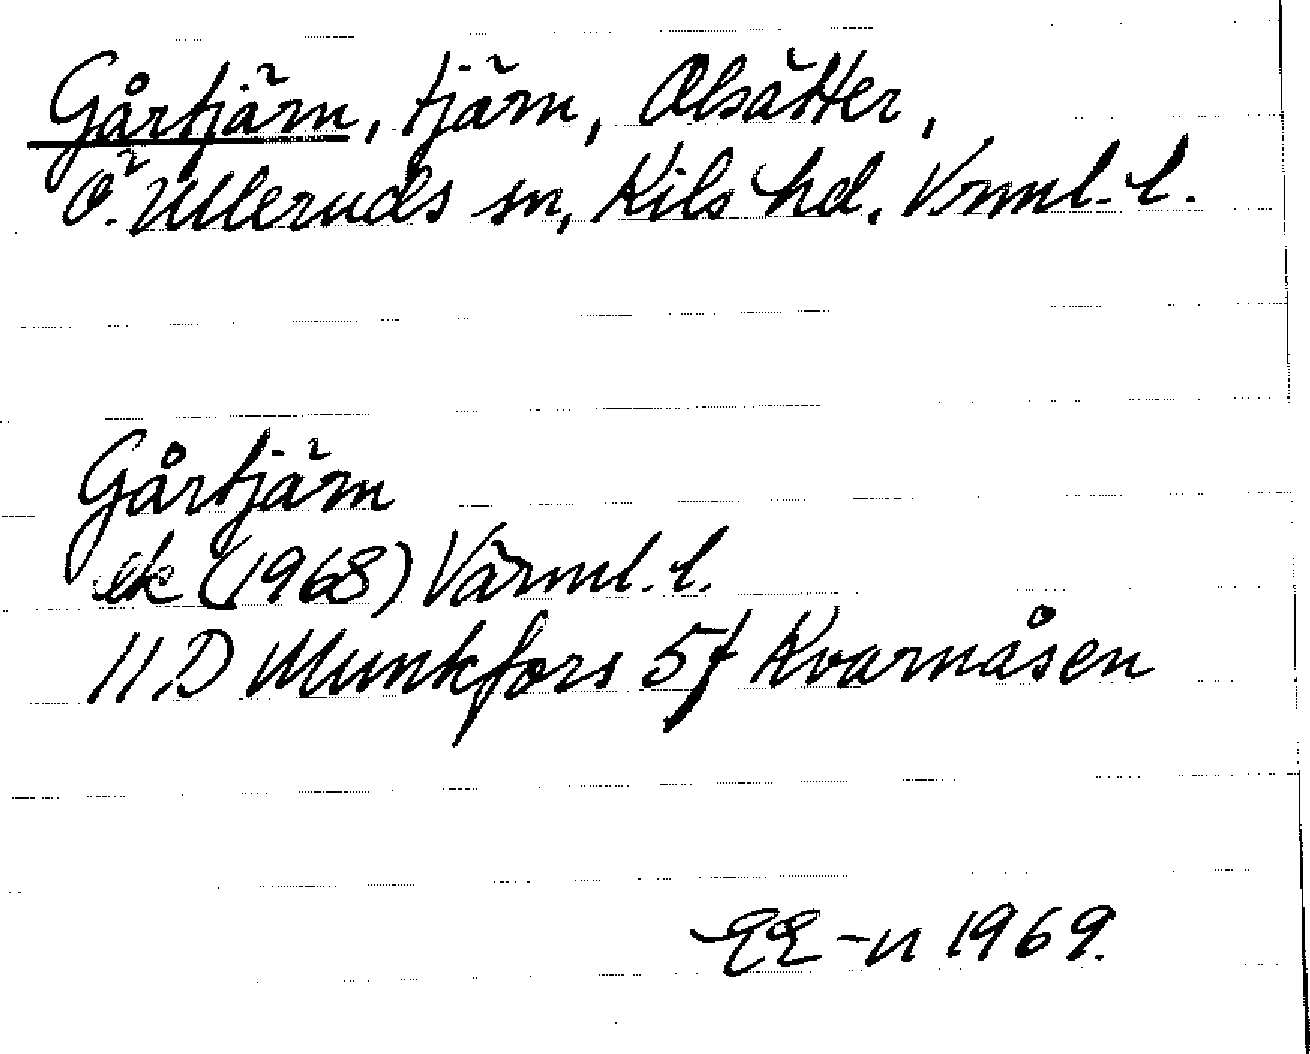 Gårtjärn, tjärn, Olsätter,
Ö. Ulleruds sn, Kils hd, Vrml. l.
Gårtjärn
ek (1968) Värml. l.
11D Munkfors 5f Kvarnåsen
EE-n 1969.